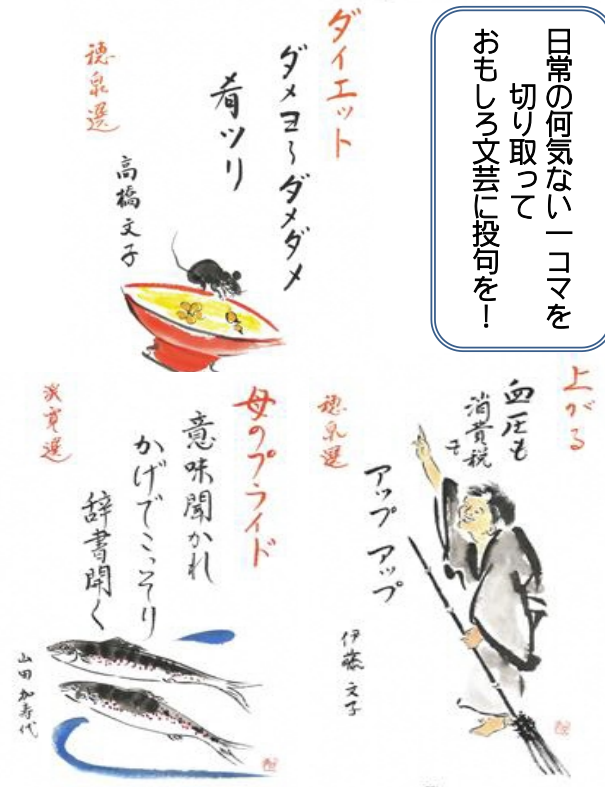 日常の何気ない一コマを
切り取って
おもしろ文芸に投句を！
ダイエット
ダメヨ～ダメダメ
肴ツリ
高橋文子
穂泉選
上がる
血圧も
消費税も
アップアップ
伊藤文子
穂泉選
母のプライド
意味聞かれ
かげでこっそり
辞書開く
山田加寿代